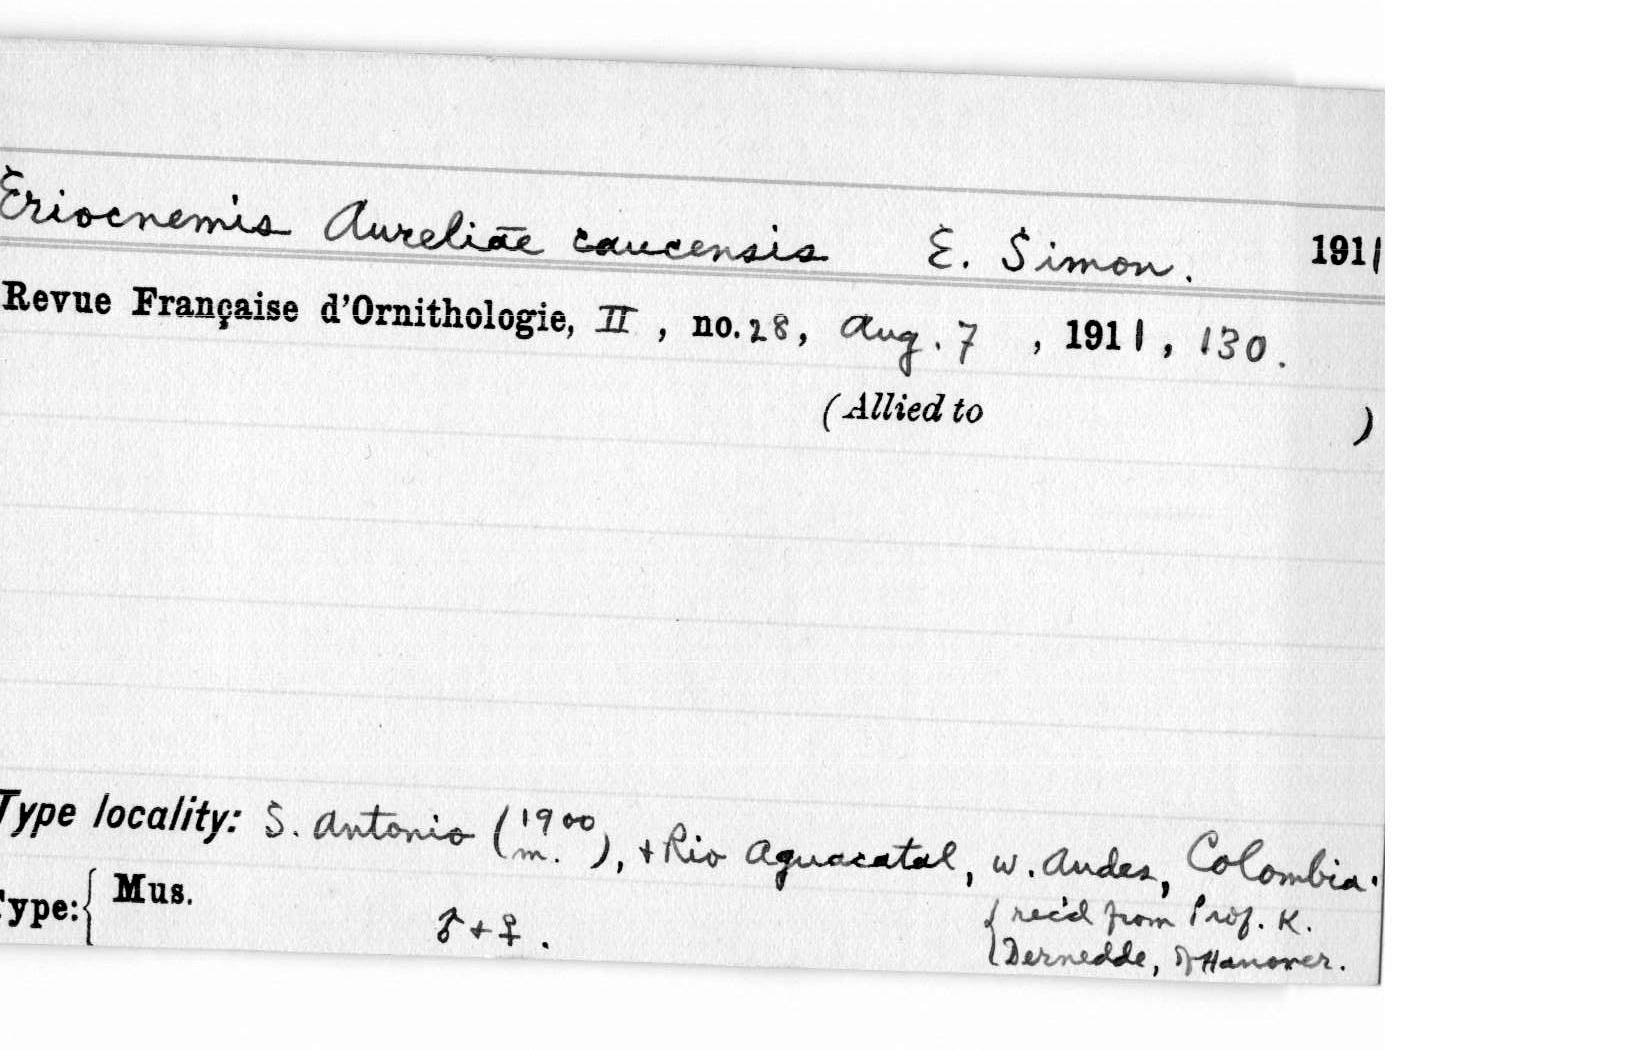 Eriocnemis Aureliae caucensis E. Simon. 1911
Revue Française d'Ornithologie, II, no. 28, Aug. 7, 1911, 130.
(Allied to )
Type locality: S. Antonio (1900 m.), + Rio Aguacatal, w. Andes, Colombia.
Type: { Mus.
♂ + ♀. { rec'd from Prof. K.
Dernedde, of Hanover.